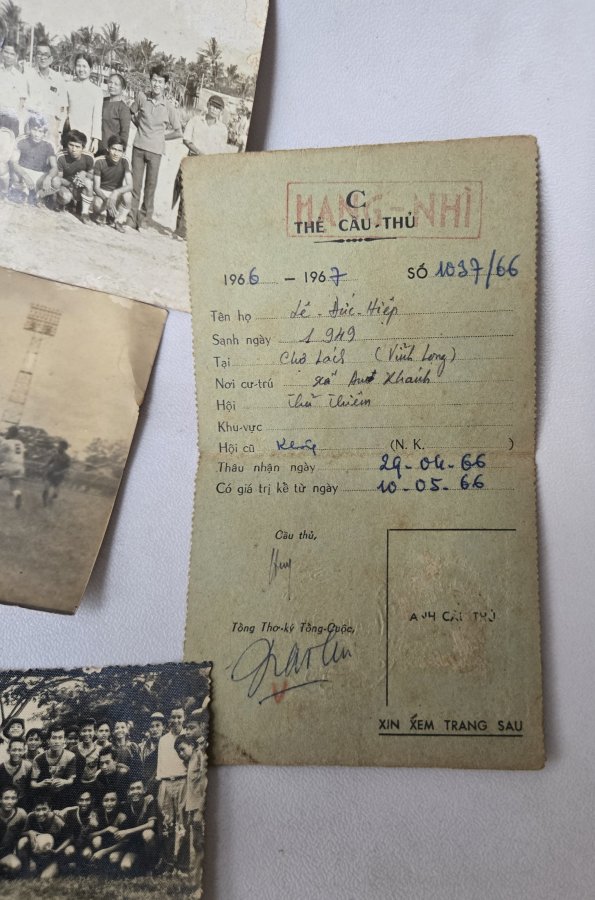 C
HẠNG-NHÌ
THẺ CẦU-THỦ
1966 — 1967 SỐ 1037/66
Tên họ Lê-Đức-Hiệp
Sanh ngày 1949
Tại Chợ Lách (Vĩnh Long)
Nơi cư-trú xã An Khánh
Hội Thủ Thiêm
Khu-vực
Hội cũ Không (N. K. )
Thâu nhận ngày 29-04-66
Có giá trị kể từ ngày 10-05-66
Cầu thủ,
Tổng Thơ-ký Tổng-Cuộc,
ẢNH CẦU THỦ
XIN XEM TRANG SAU